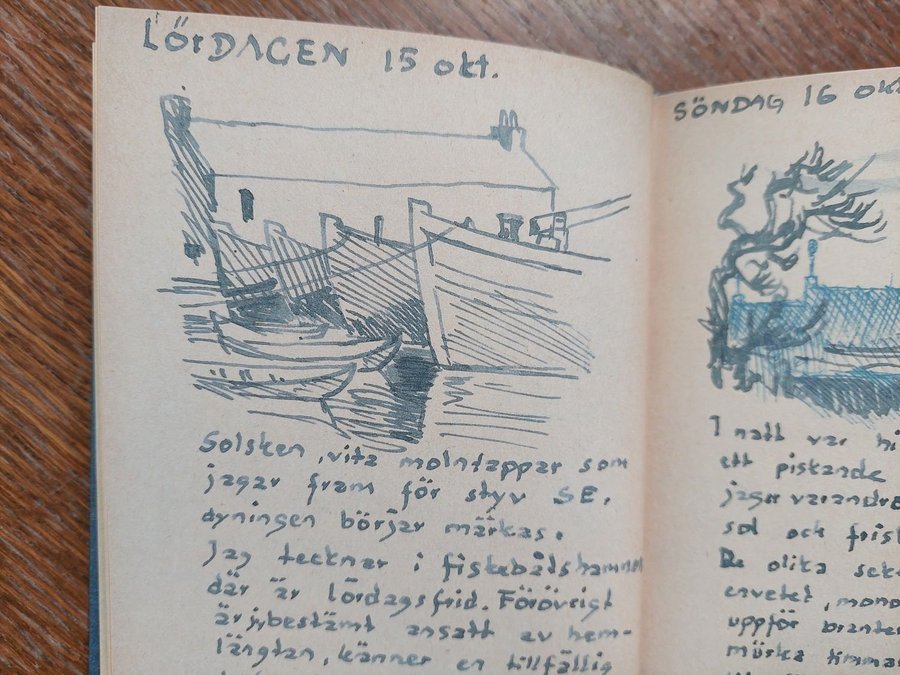 LörDAGEN 15 okt.
Solsken, vita molntappar som
jagar fram för styv SE,
dyningen börjar märkas.
Jag tecknar i fiskebåtshamnen
där är lördagsfrid. Förövrigt
är jag bestämt ansatt av hem-
längtan, känner en tillfällig
SÖNDAG 16 okt
I natt var
ett piskande
jagar varandra
sol och frisk
De olika
envetet,
uppför branter
timmar